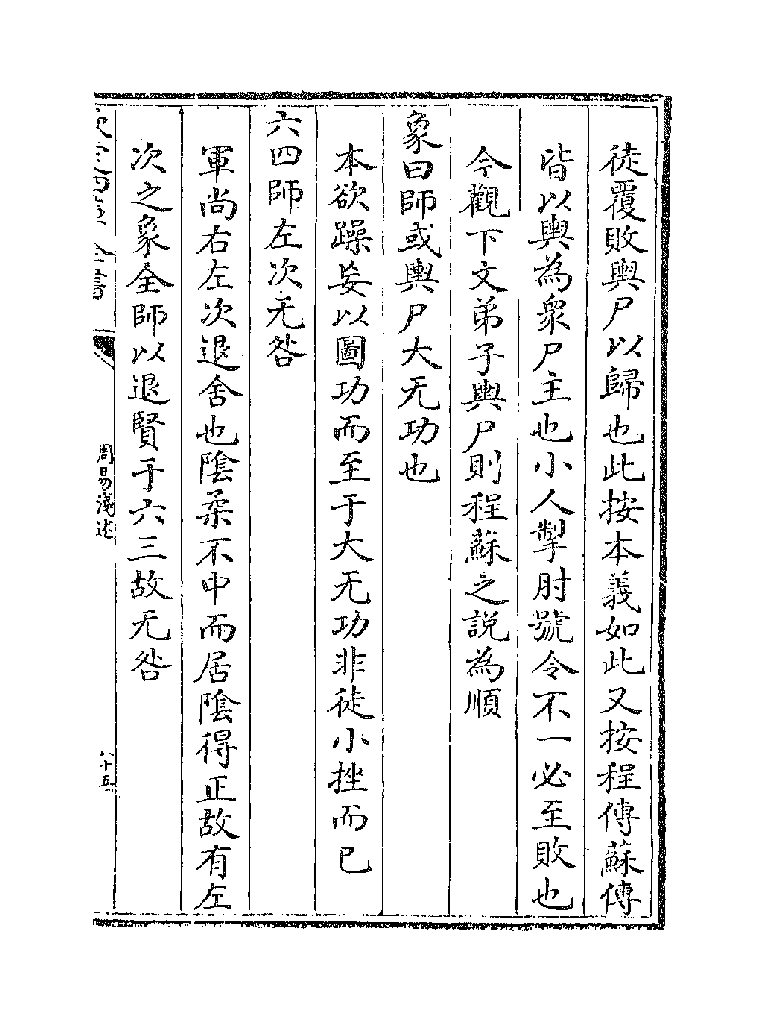 徒覆敗輿尸以歸也此按本義如此又按程傳蘇傳
皆以輿為衆尸主也小人掣肘號令不一必至敗也
今觀下文弟子輿尸則程蘇之説為順
象曰師或輿尸大无功也
本欲躁妄以圖功而至于大无功非徒小挫而已
六四師左次无咎
軍尚右左次退舍也陰柔不中而居陰得正故有左
次之象全師以退賢于六三故无咎
欽定四庫全書
周易淺述
八十五